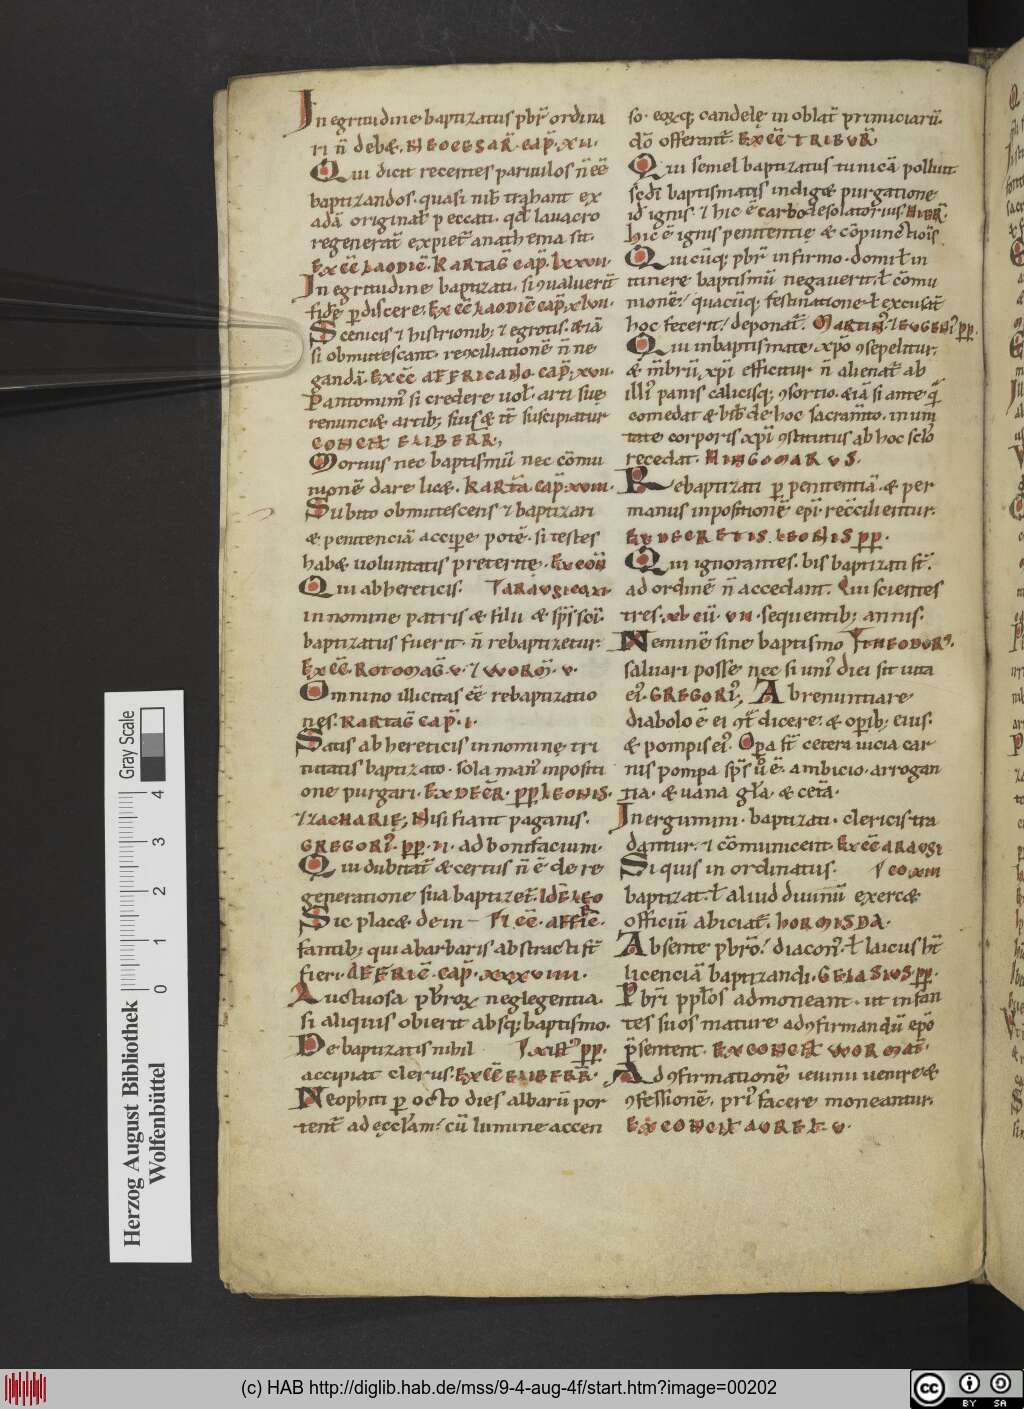 In egritudine baptizatus pbr̄ ordina
ri n̄ debæ. NEOCESAR̄. cap̄. XII.
Qui dicit recentes paruulos n̄ ēē
baptizandos. quasi nih trahant ex
adā originał peccati. qd̄ lauacro
regenerat̄ expiet̄ anathema sit.
EX CC̄ LAODIC̄. KARTAḠ CAP̄. LXXVII.
In egritudine baptizati. si ꝯualuerit̄
fidē ꝑdiscere. EX CC̄ LAODIC̄ CAP̄. XLVII.
Scenicis ⁊ histrionib; ⁊ egrotis. æiā
si obmutescant. reconciliationē n̄ ne
gandā. EX CC̄ AFFRICANO. CAP̄. XVII.
Pantomim̄ si credere uoł. arti suę
renunciæ artib; suis. & tc̄ suscipiatur
CONCIŁ ELIBERR;
Mortuis nec baptismū nec cōmu
nionē dare licæ. KARTA. CAP̄. XVIII.
Subito obmutescens ⁊ baptizari
æ penitenciā accipe. potē. si testes
habæ uoluntatis preteritę. EX CON̄
Qui ab hereticis. TARAUSICA XI.
in nomine patris æ filii æ sp̄s sc̄i.
baptizatus fuerit. n̄ rebaptizetur.
EX CC̄. ROTOMAḠ. V. ⁊ WORM̄. V.
Omnino illicitas ēē rebaptizatio
nes. KARTAḠ CAP̄. I.
Satis ab hereticis in nomine tri
nitatis baptizato. sola man' inpositi
one purgari. EX DECR̄. PP. LEONIS.
⁊ ZACHARIĘ; Nisi fiant paganis.
GREGORI' PP. II. ad bonifacium.
Qui dubitat̄ æ certus n̄ ē de re
generatione sua baptizet̄. IDĒ LEO
Sic placæ. de in FI CC̄. AFFIC̄.
fantib; qui a barbaris abstracti st̄
fieri. AFFRIC̄. CAP̄. XXXVIIII.
Luctuosa pbr̄oꝝ neglegentia.
si aliquis obierit absq; baptismo.
De baptizatis nihil XIST' PP.
accipiat clerus. EX CC̄ ELIBERR̄.
Neophiti ꝑ octo dies albarū por
tent̄ ad ęccłam. cū lumine accen
so. eqꝫq; candelę in oblat̄ primiciarū.
dō offerant̄. EX CC̄ TRIBUR̄.
Qui semel baptizatus tunicā polluit
scdi baptismatis indigæ purgatione
id' ignis. ⁊ hic ē carbo desolatorius. HIER̄.
hic ē ignis penitentię æ cōpunctiois̄
Quicūq; pbr̄ infirmo. domi ł in
itinere baptismū negauerit. ł cōmu
nionē. quacūq; festinatione ł excusat̄
hoc fecerit. deponat̄. MARTIN' ⁊ EUGENI' PP.
Qui in baptismate xp̄o ꝯsepelitur,
æ m̄brū xp̄i efficitur n̄ alienat̄ ab
illi' panis calicisq; ꝯsortio. æiā si ante q̄
comedat æ bib̄ de hoc sacram̄to. in uni
tate corporis xp̄i ꝯstitutus ab hoc scło
recedat. HINGOMARUS.
Rebaptizati ꝑ penitentiā. æ per
manus inpositionē ep̄i recc̄ilientur.
EX DECRETIS LEONIS PP.
Qui ignorantes. bis baptizati st̄.
ad ordinē n̄ accedant. Qui scientes
tres. XL cū. VII. sequentib; annis.
Neminē sine baptismo THEODOR'.
saluari posse nec si uni' diei sit uita
ei'. GREGORI'; Abrenuntiare
diabolo ē ei ꝯt̄dicere. æ opib; eius.
æ pompis ei'. Opa st̄ cetera uicia car
nis pompa sp̄s ū ē. ambicio. arrogan
tia. æ uana gła. æ cetā.
Inergumini. baptizati. clericis tra
dantur. ⁊ cōmunicent. EX CC̄ ARAUSI
Siquis inordinatus. CO XIII
baptizat̄. ł aliud diuinū exercæ
officiū abiciat̄. HORMISDA.
Absente pbr̄o. diacon'. ł laicus ht̄
licenciā baptizandi. GELASIUS. PP.
Pbr̄i pp̄łos admoneant. ut infan
tes suos mature ad ꝯfirmandū ep̄o
p̄sentent. EX CONCIŁ WORMAT̄.
Ad ꝯfirmationē ieiuni uenire. æ
ꝯfessionē. pri' facere moneantur.
EX CONCIŁ AUREL̄. V.
Herzog August Bibliothek
Wolfenbüttel
0 1 2 3 4
Gray Scale
(c) HAB http://diglib.hab.de/mss/9-4-aug-4f/start.htm?image=00202
cc BY SA